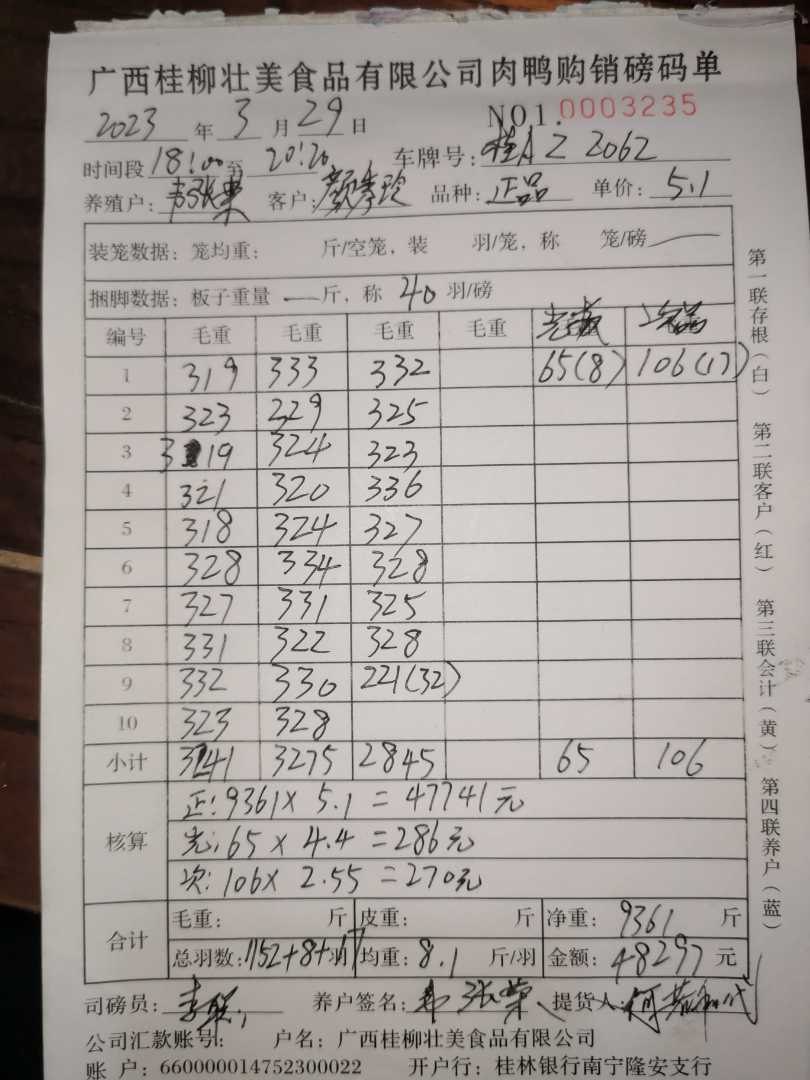 广西桂柳壮美食品有限公司肉鸭购销磅码单
2023 年 3 月 29 日 NO1. 0003235
时间段 18:00 至 20:20 车牌号: 桂A Z 2062
养殖户: 韦张荣 客户: 颜孝玲 品种: 正品 单价: 5.1
装笼数据: 笼均重: 斤/空笼, 装 羽/笼, 称 笼/磅 —
捆脚数据: 板子重量 — 斤, 称 40 羽/磅
编号 毛重 毛重 毛重 毛重 次品
1 319 333 332 65(8) 106(17)
2 323 229 325
3 319 324 323
4 321 320 336
5 318 324 327
6 328 334 328
7 327 331 325
8 331 322 328
9 332 330 221(32)
10 323 328
小计 3241 3275 2845 65 106
核算 正: 9361 × 5.1 = 47741元
光: 65 × 4.4 = 286元
次: 106 × 2.55 = 270元
合计 毛重: 斤 皮重: 斤 净重: 9361 斤
总羽数: 1152+8+17 羽 均重: 8.1 斤/羽 金额: 48297 元
司磅员: 养户签名: 韦张荣 提货人:
公司汇款账号: 户名: 广西桂柳壮美食品有限公司
账 户: 660000014752300022 开户行: 桂林银行南宁隆安支行
第一联存根(白) 第二联客户(红) 第三联会计(黄) 第四联养户(蓝)